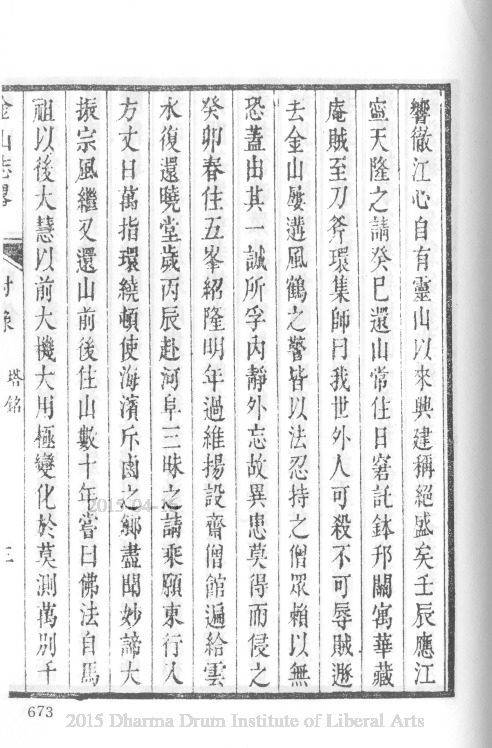 響徹江心自有靈山以來興建稱絕盛矣壬辰應江
寧天隆之請癸巳還山常住日窘託鉢邗關寓華藏
庵賊至刀斧環集師曰我世外人可殺不可辱賊遯
去金山屢遘風鶴之警皆以法忍持之僧眾賴以無
恐蓋由其一誠所孚內靜外忘故異患莫得而侵之
癸卯春住五峯紹隆明年過維揚設齋僧館遍給雲
水復還曉堂歲丙辰赴河阜三昧之請乘願東行入
方丈日萬指環繞頓使海濱斥鹵之鄉盡聞妙諦大
振宗風繼又還山前後住山數十年嘗曰佛法自馬
祖以後大慧以前大機大用極變化於莫測萬別千
金山志畧 塔銘 三
673
2015-04-
2015 Dharma Drum Institute of Liberal Arts